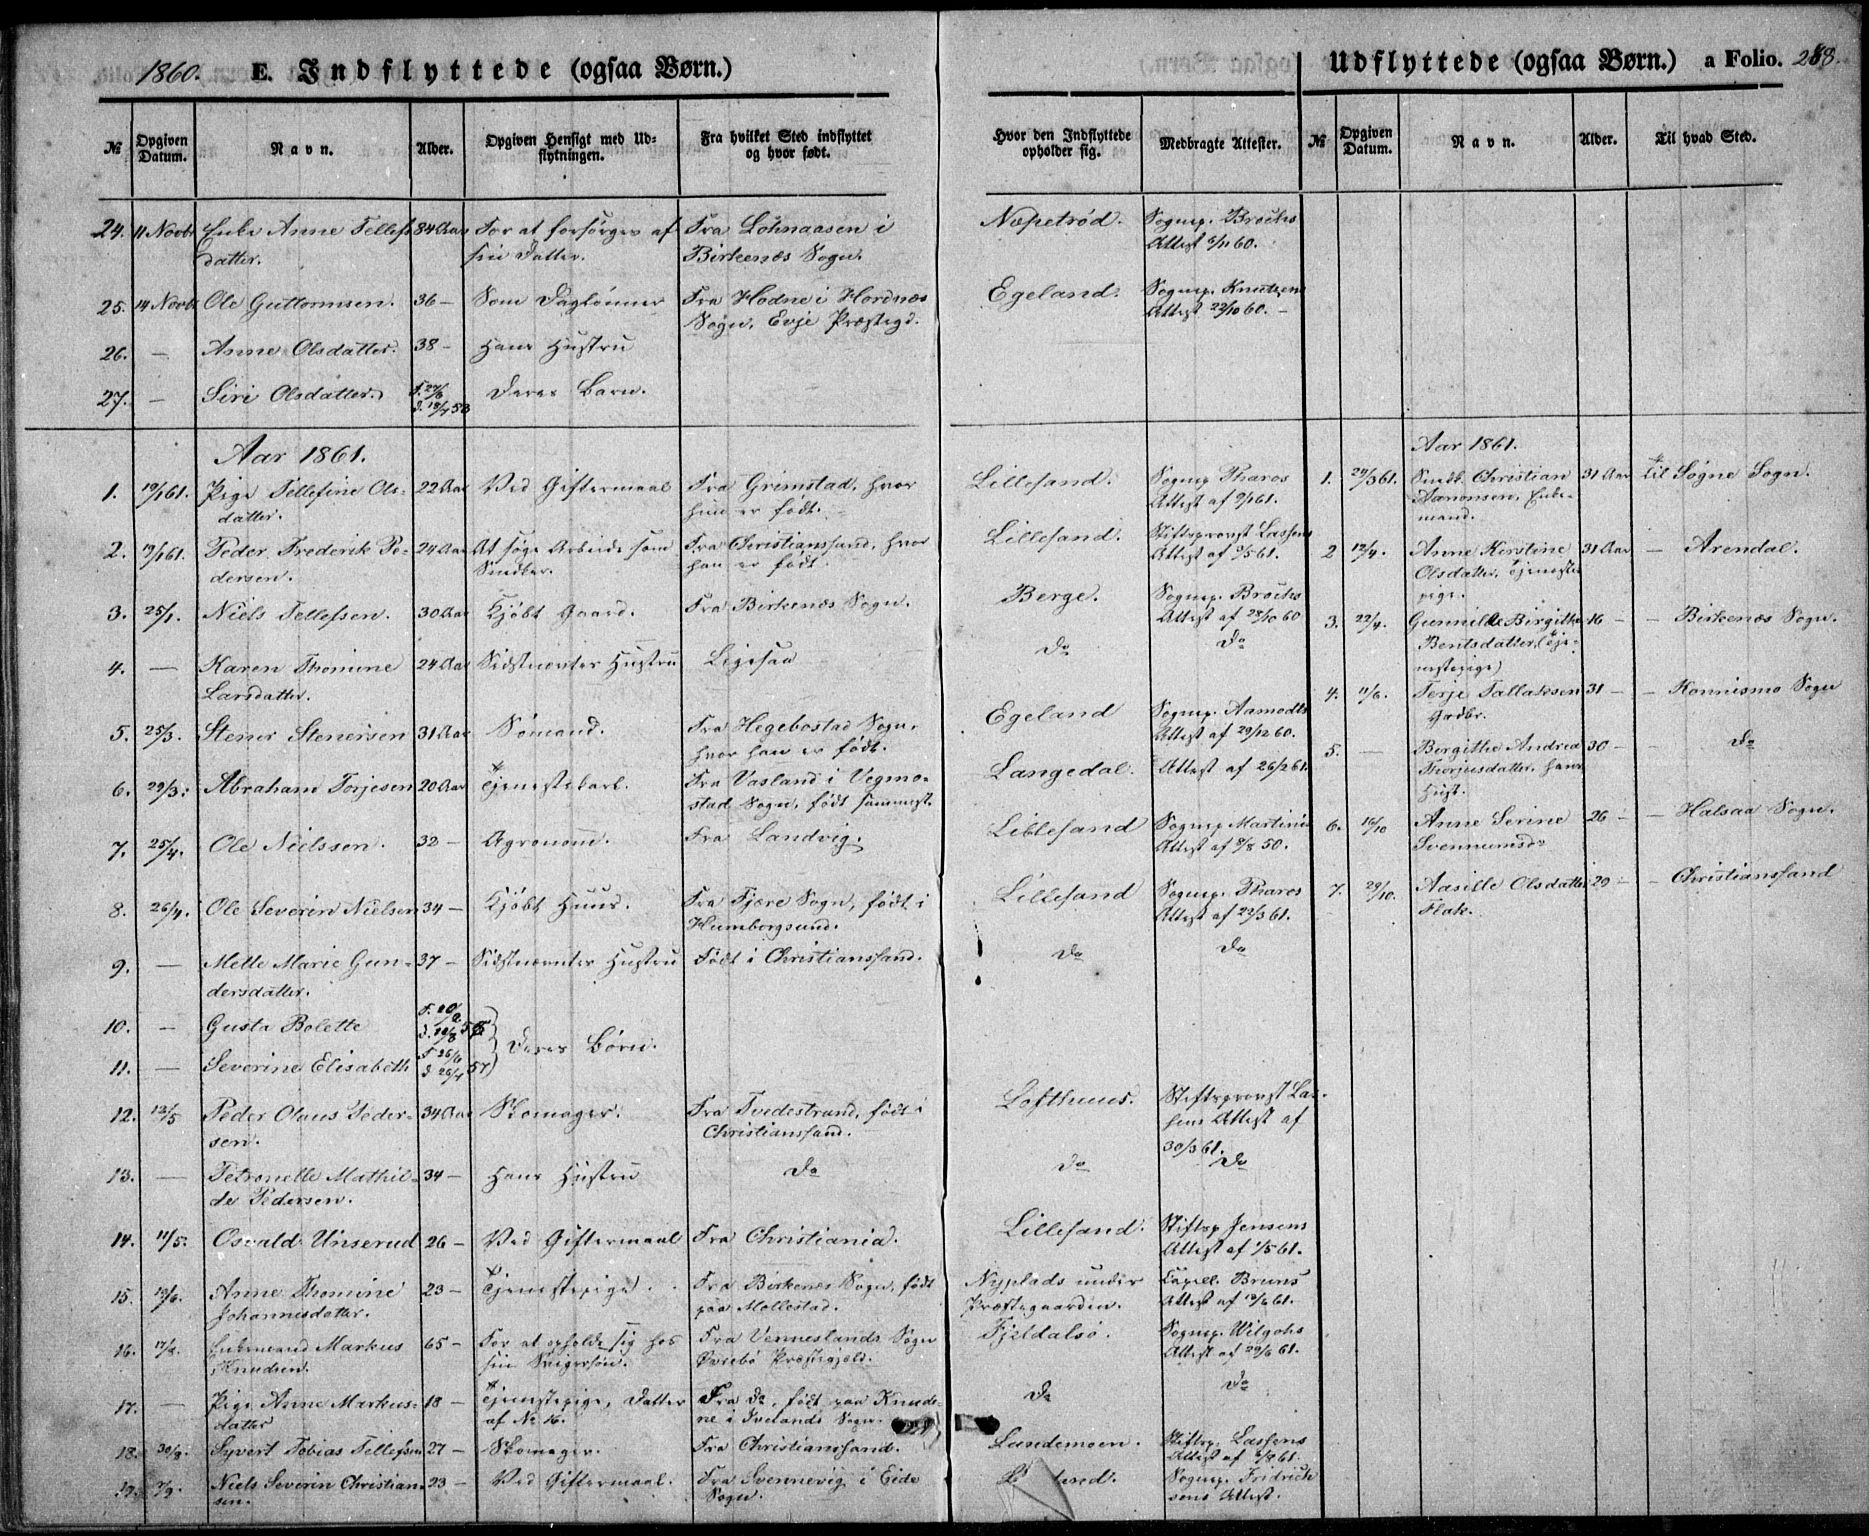 1860. E. Indflyttede (ogsaa Børn.)
№ Opgiven Datum. Navn. Alder. Opgiven Hensigt med Udflytningen. Fra hvilket Sted indflyttet og hvor født. Hvor den Indflyttede opholder sig. Medbragte Attester.
24. 11 Novbr Enke Anne Tellefsdatter. 84 Aar For at forsørges af sin Datter. Fra Lohnaasen i Birkenæs Sogn. Næpetrød. Sognep. Broches Attest 60.
25. 14 Novbr Ole Guttormsen. 36 – Som Daglønner Fra Hodne i Hordnæs Sogn, Evje Præstegd. Egeland. Sognep. Knutzens Attest 22/10 60. –
26. — Anne Olsdatter. 38 – Hans Hustru
27. — Siri Olsdatter. Deres Barn.
Aar 1861.
1. 19/1 61. Pige Tellefine Olsdatter. 22 Aar Ved Giftermaal Fra Grimstad, hvor hun er født. Lillesand. Sognep Tharos Attest af 9/1 61.
2. 19/1 61. Peder Frederik Pedersen. 24 Aar At søge Arbeide som Snedker. Fra Christianssand, hvor han er født. Lillesand. Stiftsprovst Lassens Attest af 61.
3. 25/1. Niels Tellefsen. 30 Aar Kjøbt Gaard. Fra Birkenæs Sogn. Berge. Sognep. Broches Attest af 28/10 60
4. — Karen Thomine Larsdatter. 24 Aar Sidstnævntes Hustru Ligesaa Do Do
5. 25/3. Stener Stenersen 31 Aar Sømand. Fra Hegebostad Sogn, hvor han er født. Egeland Sognep. Aamodts Attest af 29/12 60.
6. 29/3. Abraham Torjesen 20 Aar Tjenestekarl. Fra Vasland i Vegmostad Sogn, født sammest. Langedal. Attest af 26/2 61.
7. 25/4. Ole Nielssen. 32 – Agronom. Fra Landvig. Lillesand Sognep Martinis Attest af 9/8 50.
8. 26/4. Ole Severin Nielsen 34 – Kjøbt Huus. Fra Fjære Sogn, født i Humborgsund. Lillesand Sognep. Tharos Attest af 22/3 61.
9. — Mette Marie Gundersdatter. 37 – Sidstnævntes Hustru Født i Christianssand. Do Do
10. — Gusta Bolette Deres Børn.
11. — Severine Elisabeth F 26/6 D 26/4 57
12. 12/5 Peder Olaus Pedersen. 34 Aar Skomager. Fra Tvedestrand, født i Christianssand. Lofthuus. Stiftsprovst Lassens Attest af 30/3 61.
13. — Petronelle Mathilde Pedersen. 34 – Hans Hustru Do Do Do
14. 11/5. Osvald Unserud 26 – Ved Giftermaal Fra Christiania. Lillesand. Stiftsp Jensens Attest af 1/5 61.
15. 13/6. Anne Thomine Johannesdatter. 23 – Tjenestepige. Fra Birkenæs Sogn, født paa Mollestad. Nyplads under Præstegaarden. Capell. Bruns Attest af 12/6 61.
16. Enkemand Markus Knudsen. 65 – For at opholde sig hos sin Svigersøn. Fra Venneslands Sogn Øvrebø Præstegjeld. Fjeldalsø. Sognep. Wilgohs Attest af 29/6 61.
17. — Pige Anne Markusdatter 18 – Tjenestepige, Datter af No 16. Fra Do, født paa Knudene i Ivelands Sogn. Do Do
18. 30/8. Syvert Tobias Tellefsen 27 – Skomager. Fra Christianssand. Lundemoen. Stiftsp. Lassens Attest af 61.
19. 7/9. Niels Severin Christiansen. 23 – Ved Giftermaal. Fra Svennevig i Eide Sogn. Sognep. Fridrichsens Attest.
Udflyttede (ogsaa Børn.) a Folio. 288.
№ Opgiven Datum. Navn. Alder. Til hvad Sted.
Aar 1861.
1. 29/3 61. Snedk. Christian Aanonsen, Enkemand. 31 Aar til Søgne Sogn.
2 12/4. Anne Kirstine Olsdatter, Tjenestepige. 31 Aar – Arendal.
3. 22/4. Gunnilde Birgithe Bentsdatter, (Tjenestepige) 16 – – Birkenæs Sogn.
4. 11/6. Terje Tallaksen Grdbr. 31 – – Konnismo Sogn
5. — Birgithe Andrea Thorjusdatter, hans Hust. 30 – – Do
6. 16/10 Anne Serine Svennumsdr 26 – – Halsaa Sogn.
7. 29/10. Aasille Olsdatter Flak. 29 – – Christianssand